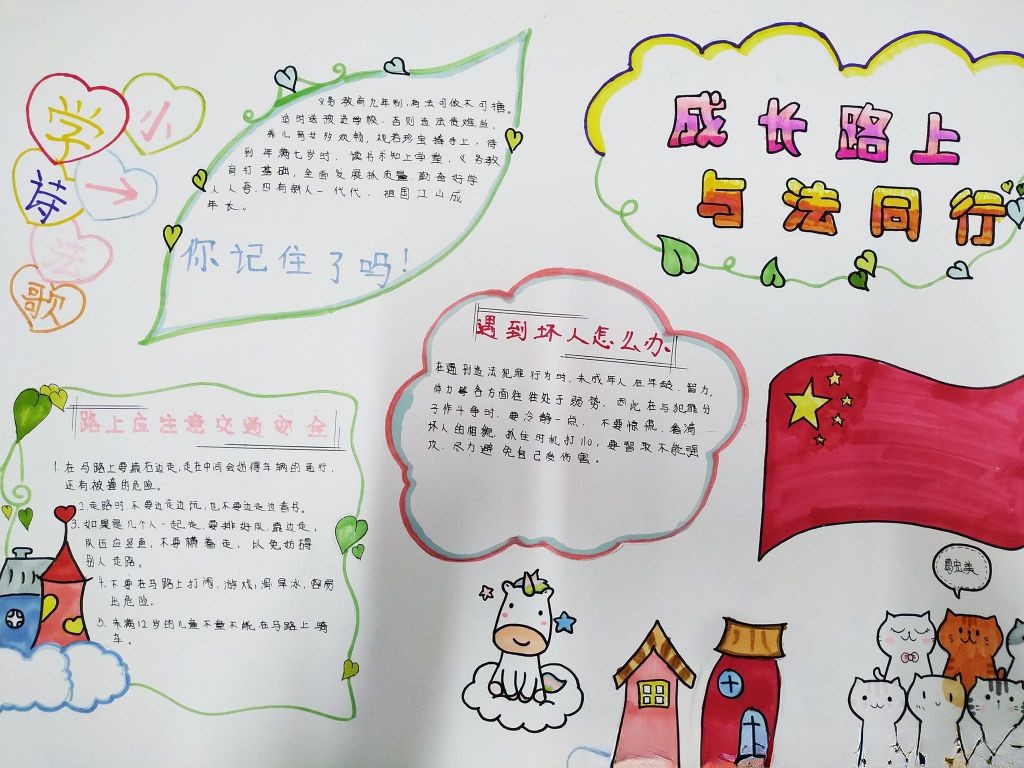 成长路上
与法同行
小
学
一
荐
法
歌
义务教育九年制,有法可依不可擅。
适时送被适学校,否则违法责难当,
养儿育女多欢畅,视若珍宝捧手上,待
到年满七岁时,读书求知上学堂,义务教
育打基础,全面发展抓质量,勤奋好学
人人夸,四有新人一代代,祖国江山成
年长。
你记住了吗!
遇到坏人怎么办
在遇到违法犯罪行为时,未成年人在年龄、智力、
体力等各方面往往处于弱势,因此在与犯罪分
子作斗争时,要冷静一点,不要惊慌,看清
坏人的相貌,抓住时机打110,要智取不能强
攻,尽力避免自己受伤害。
路上应注意交通安全
1.在马路上要靠右边走,走在中间会妨碍车辆的运行,
还有被撞的危险。
2.走路时不要边走边玩,也不要边走边看书。
3.如果是几个人一起走,要排好队,靠边走,
队伍应竖直,不要横着走,以免妨碍
别人走路。
4.不要在马路上打闹,游戏,滑旱冰,容易
出危险。
5.未满12岁的儿童不能在马路上骑
车。